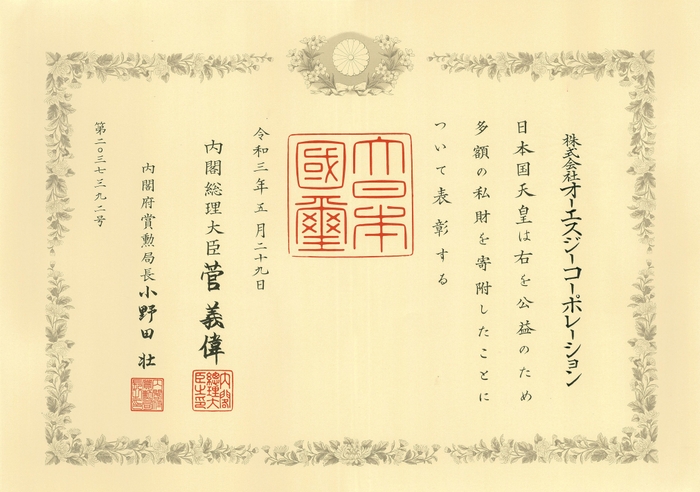 株式会社オーエスジーコーポレーション
日本国天皇は右を公益のため
多額の私財を寄附したことに
ついて表彰する
大日本國璽
令和三年五月二十九日
内閣総理大臣 菅義偉
内閣総理大臣之印
内閣府賞勲局長 小野田壮
第二〇三七三九二号